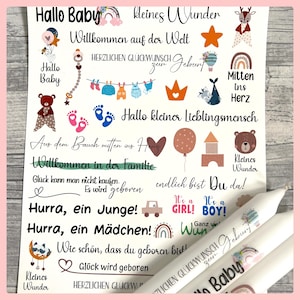 Hallo Baby kleines Wunder
Willkommen auf der Welt
HERZLICHEN GLÜCKWUNSCH
zur Geburt
Hallo
Baby
Mitten
ins
Herz
Hallo kleiner Lieblingsmensch
Aus dem Bauch mitten ins H
Willkommen in der Familie
kleines
Wunder
Glück kann man nicht kaufen
Es wird geboren
endlich bist Du da!
Hurra, ein Junge!
It's a
GIRL!
It's a
BOY!
Hurra, ein Mädchen!
Wie schön, dass du geboren bist
kleines
Wunder
Glück wird geboren
HERZLICHEN GLÜCKWUNSCH
zur Geburt
Hallo Baby